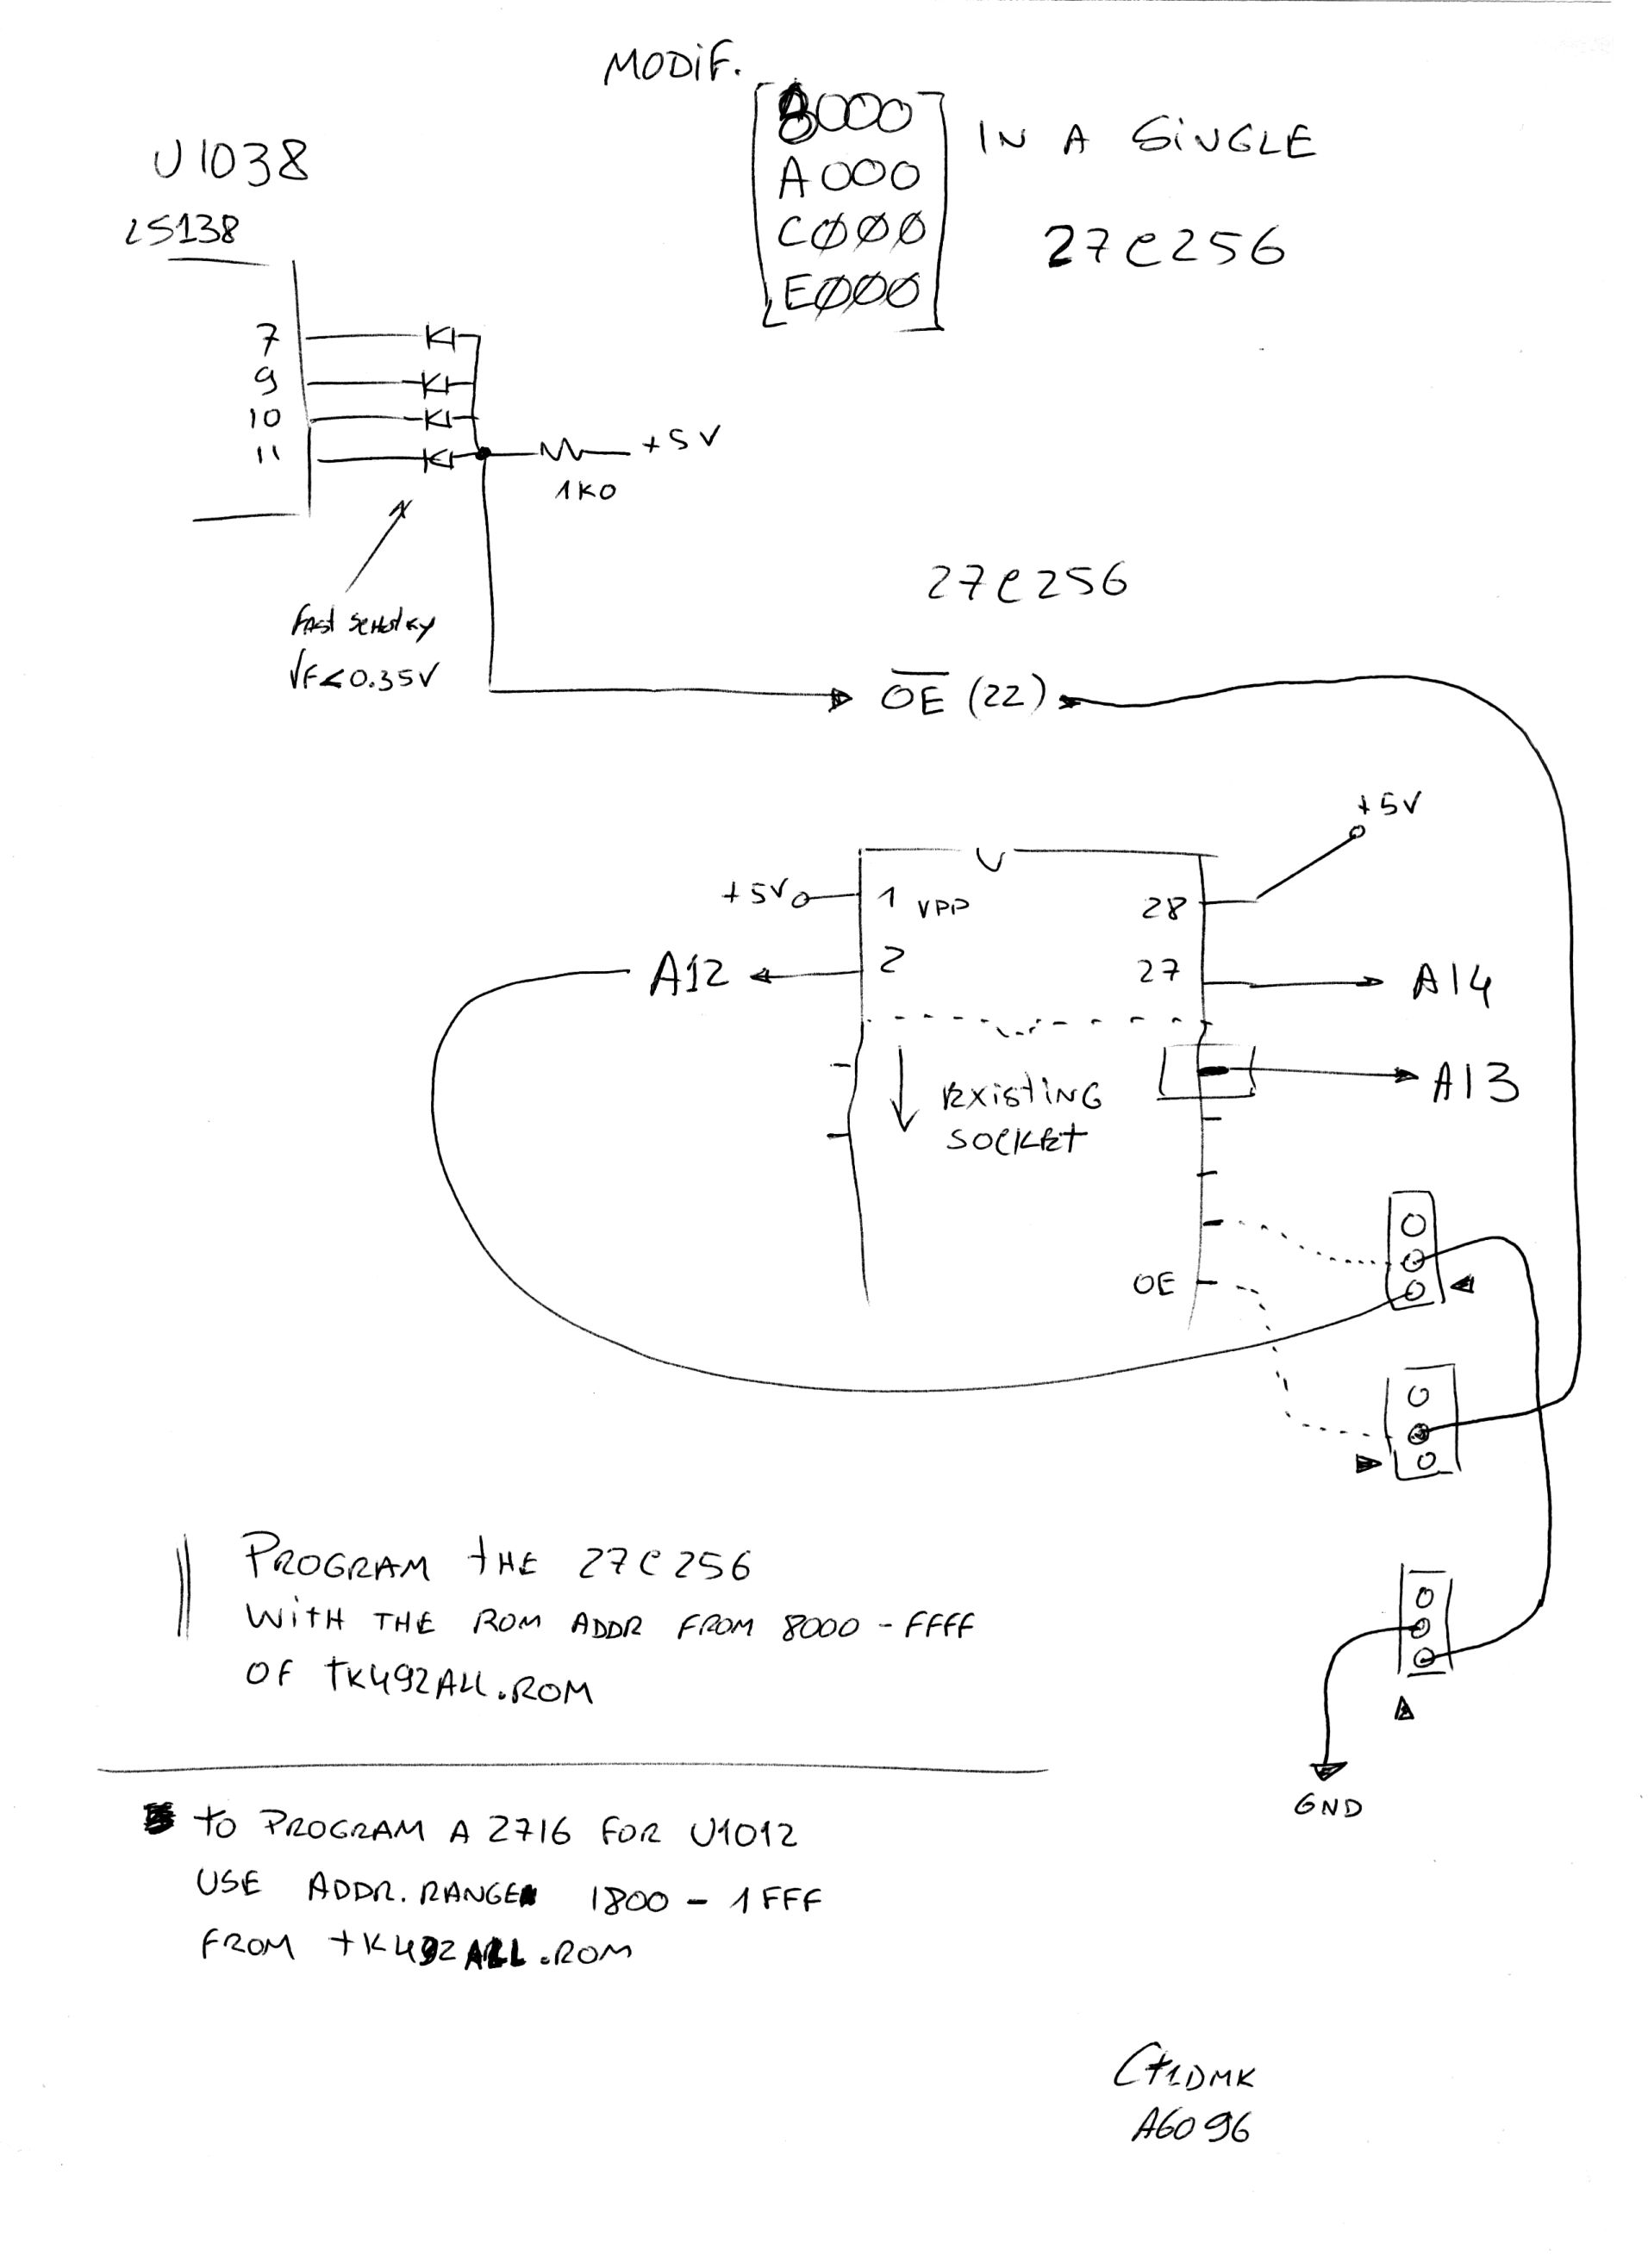 MODIF.
8000
A000
CØØØ
EØØØ
IN A SINGLE
27C256
U1038
LS138
7
9
10
11
+5V
1K0
FAST SCHOTKY
VF<0.35V
27C256
OE (22)
+5V
+5V
1 VPP
28
A12
2
27
A14
EXISTING
SOCKET
A13
OE
PROGRAM THE 27C256
WITH THE ROM ADDR FROM 8000 - FFFF
OF TK492ALL.ROM
GND
TO PROGRAM A 2716 FOR U1012
USE ADDR. RANGE 1800 - 1FFF
FROM TK492ALL.ROM
CT1DMK